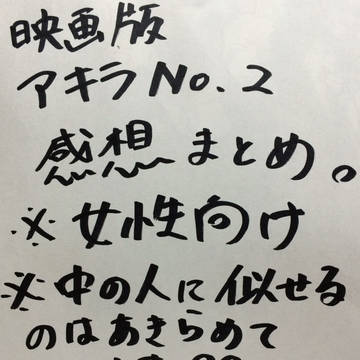 映画版
アキラNo.2
感想まとめ。
※女性向け
※中の人に似せる
のはあきらめて